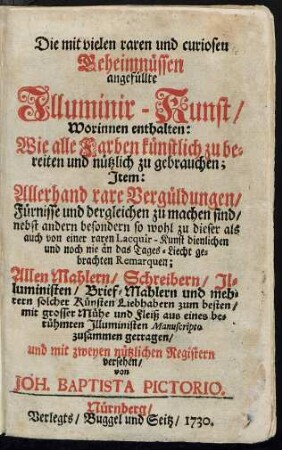 Die mit vielen raren und curiosen
Geheimnüssen
angefüllte
Illuminir-Kunst/
Worinnen enthalten:
Wie alle Farben künstlich zu be-
reiten und nützlich zu gebrauchen;
Item:
Allerhand rare Vergüldungen/
Fürnisse und dergleichen zu machen sind/
nebst andern besondern so wohl zu dieser als
auch von einer raren Lacquir-Kunst dienlichen
und noch nie an das Tages-Liecht ge-
brachten Remarquen;
Allen Mahlern/ Schreibern/ Il-
luministen/ Brief-Mahlern und meh-
rern solcher Künsten Liebhabern zum besten/
mit grosser Mühe und Fleiß aus eines be-
rühmten Illuministen Manuscripto
zusammen getragen/
und mit zweyen nützlichen Registern
versehen/
von
JOH. BAPTISTA PICTORIO.
Nürnberg/
Verlegts/ Buggel und Seitz/ 1730.